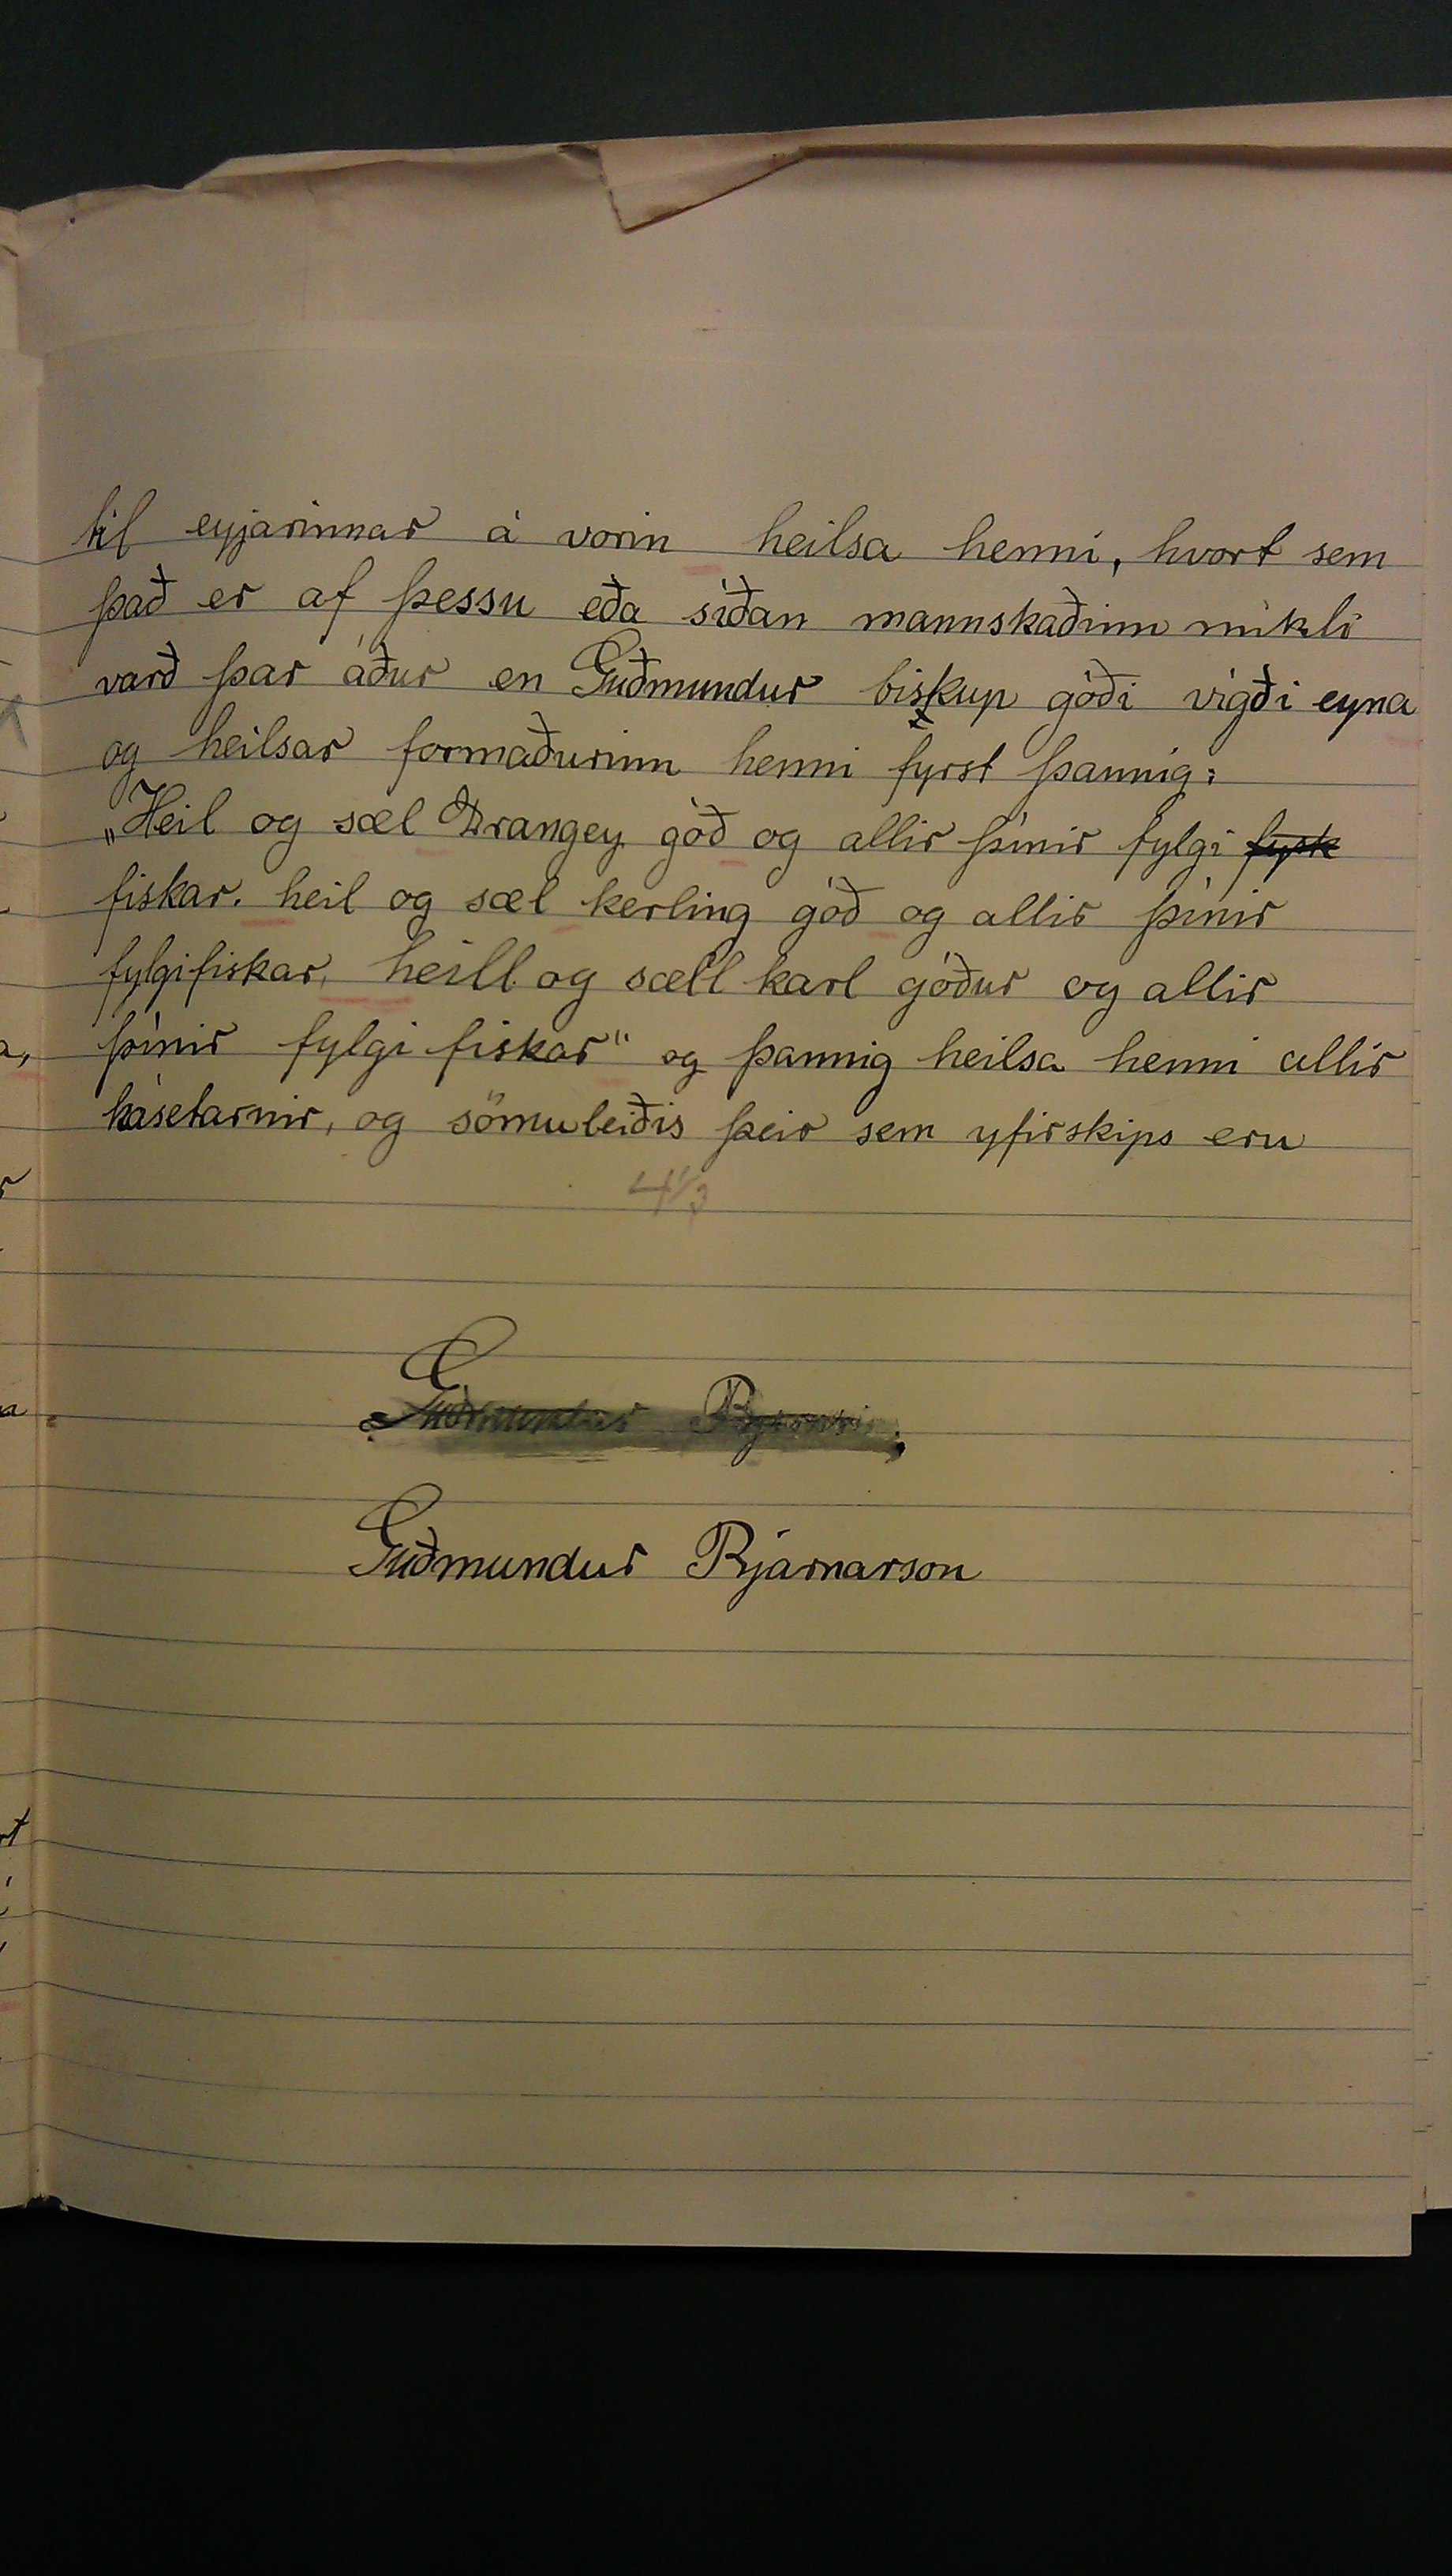 til eyjarinnar á vorin heilsa henni, hvort sem
það er af þessu eða síðan mannskaðinn mikli
varð þar áður en Guðmundur biskup góði vígði eyna
og heilsar formaðurinn henni fyrst þannig:
„Heil og sæl Drangey góð og allir þínir fylgi fysk
fiskar. heil og sæl kerling góð og allir þínir
fylgifiskar, heill og sæll karl góður og allir
þínir fylgi fiskar" og þannig heilsa henni allir
hásetarnir, og sömuleiðis þeir sem yfirskips eru
4 1/3
Guðmundur
Guðmundur Bjarnarson